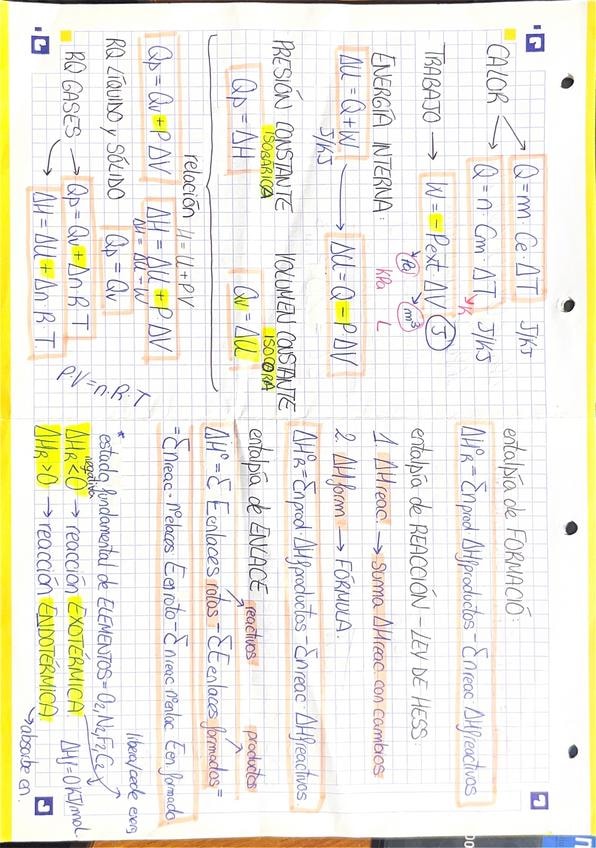 CALOR → Q = m · Ce · ΔT J/KJ
→ Q = n · Cm · ΔT J/KJ
K
TRABAJO → W = - Pext ΔV (J)
Pa m³
KPa L
ENERGÍA INTERNA:
ΔU = Q + W → ΔU = Q - PΔV
J/KJ
PRESIÓN CONSTANTE VOLUMEN CONSTANTE
ISOBÁRICA ISOCORA
Qp = ΔH Qv = ΔU
relación H = U + PV
Qp = Qv + PΔV ΔH = ΔU + PΔV
ΔH = ΔU - W
RQ LÍQUIDO y SÓLIDO Qp = Qv
RQ GASES → Qp = Qv + Δn·R·T
→ ΔH = ΔU + Δn·R·T
P·V = n·R·T
entalpía de FORMACIÓ:
ΔH°R = Σnprod ΔHfproductos - Σnreac ΔHfreactivos
entalpía de REACCIÓN - LEY DE HESS:
1. ΔHreac. → Suma ΔHreac con cambios
2. ΔHform → FÓRMULA.
ΔH°R = Σnprod · ΔHfproductos - Σnreac · ΔHfreactivos
entalpía de ENLACE reactivos productos
ΔH° = Σ Eenlaces rotos - ΣEenlaces formados =
= Σnreac · nºelaces Eenroto - Σnreac nºenlac Eenformado.
* estado fundamental de ELEMENTOS = O2, N2, F2, C2
ΔHf = 0 KJ/mol
negativa libera/cede energ
ΔHR < 0 → reacción EXOTÉRMICA
ΔHR > 0 → reacción ENDOTÉRMICA
→ absorbe en.